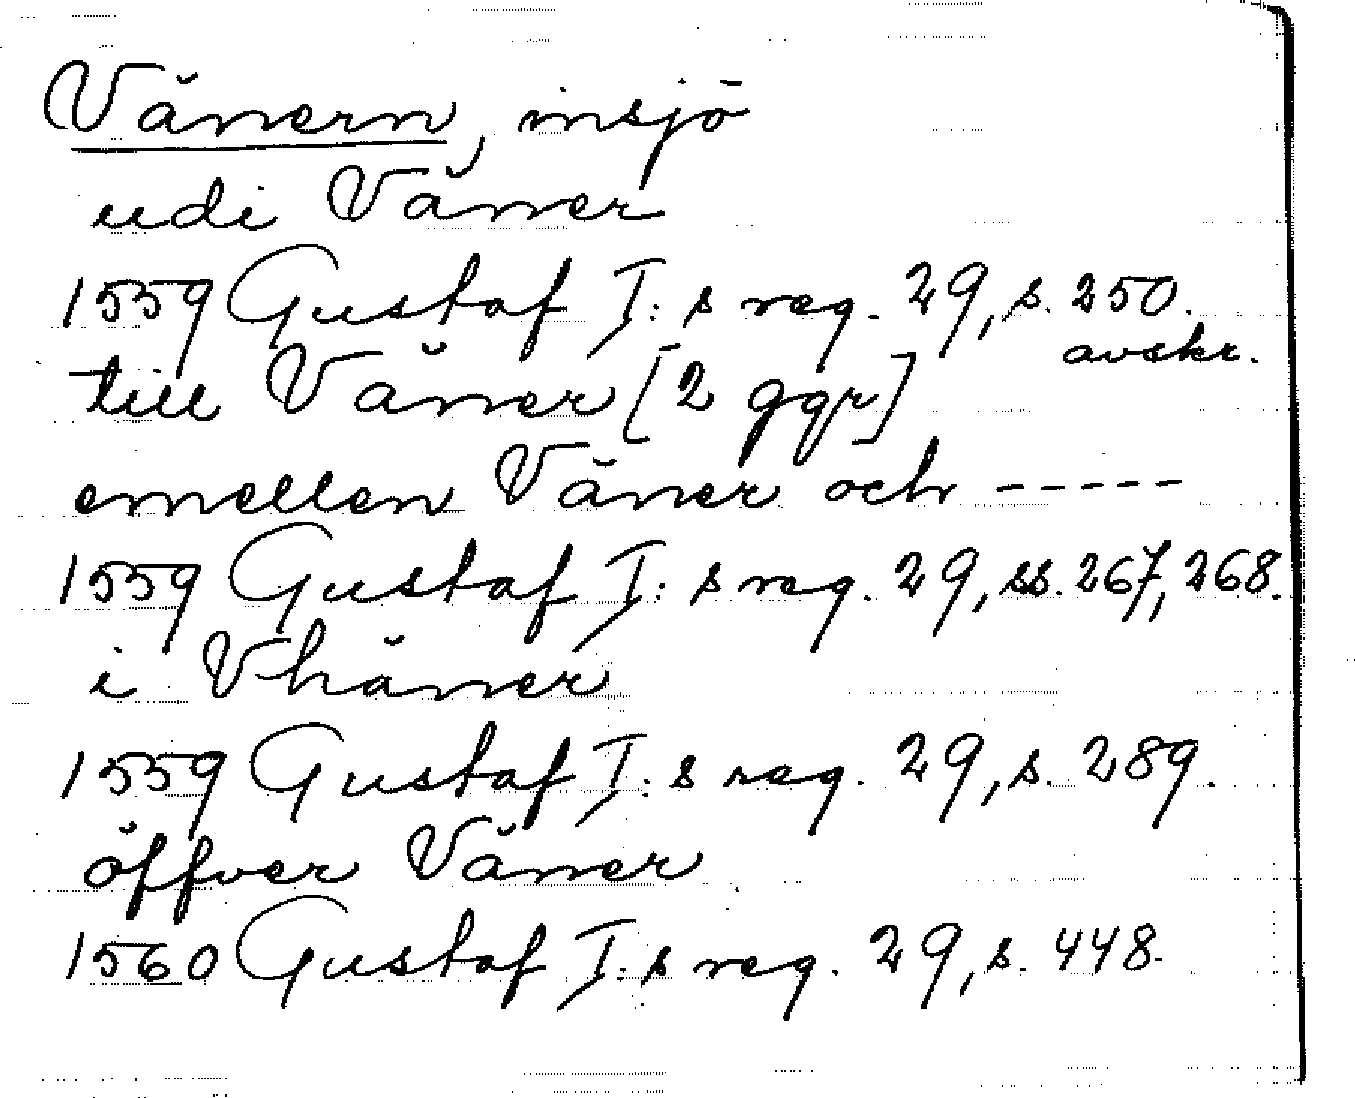 Vänern, insjö
udi Väner
1559 Gustaf I:s reg. 29, s. 250.
avskr.
till Väner [2 ggr]
emellen Väner och -----
1559 Gustaf I:s reg. 29, ss. 267, 268.
i Vhäner
1559 Gustaf I:s reg. 29, s. 289.
öffver Väner
1560 Gustaf I:s reg. 29, s. 448.